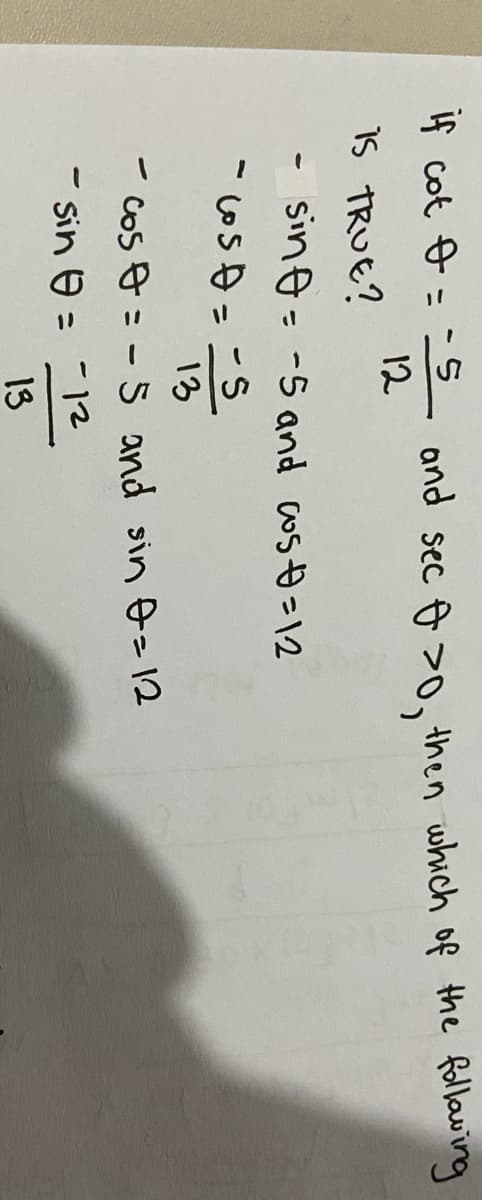 if cot θ = -5/12 and sec θ >0, then which of the following
is TRUE?
- sin θ = -5 and cos θ = 12
- cos θ = -5/13
- cos θ = -5 and sin θ = 12
- sin θ = -12/13